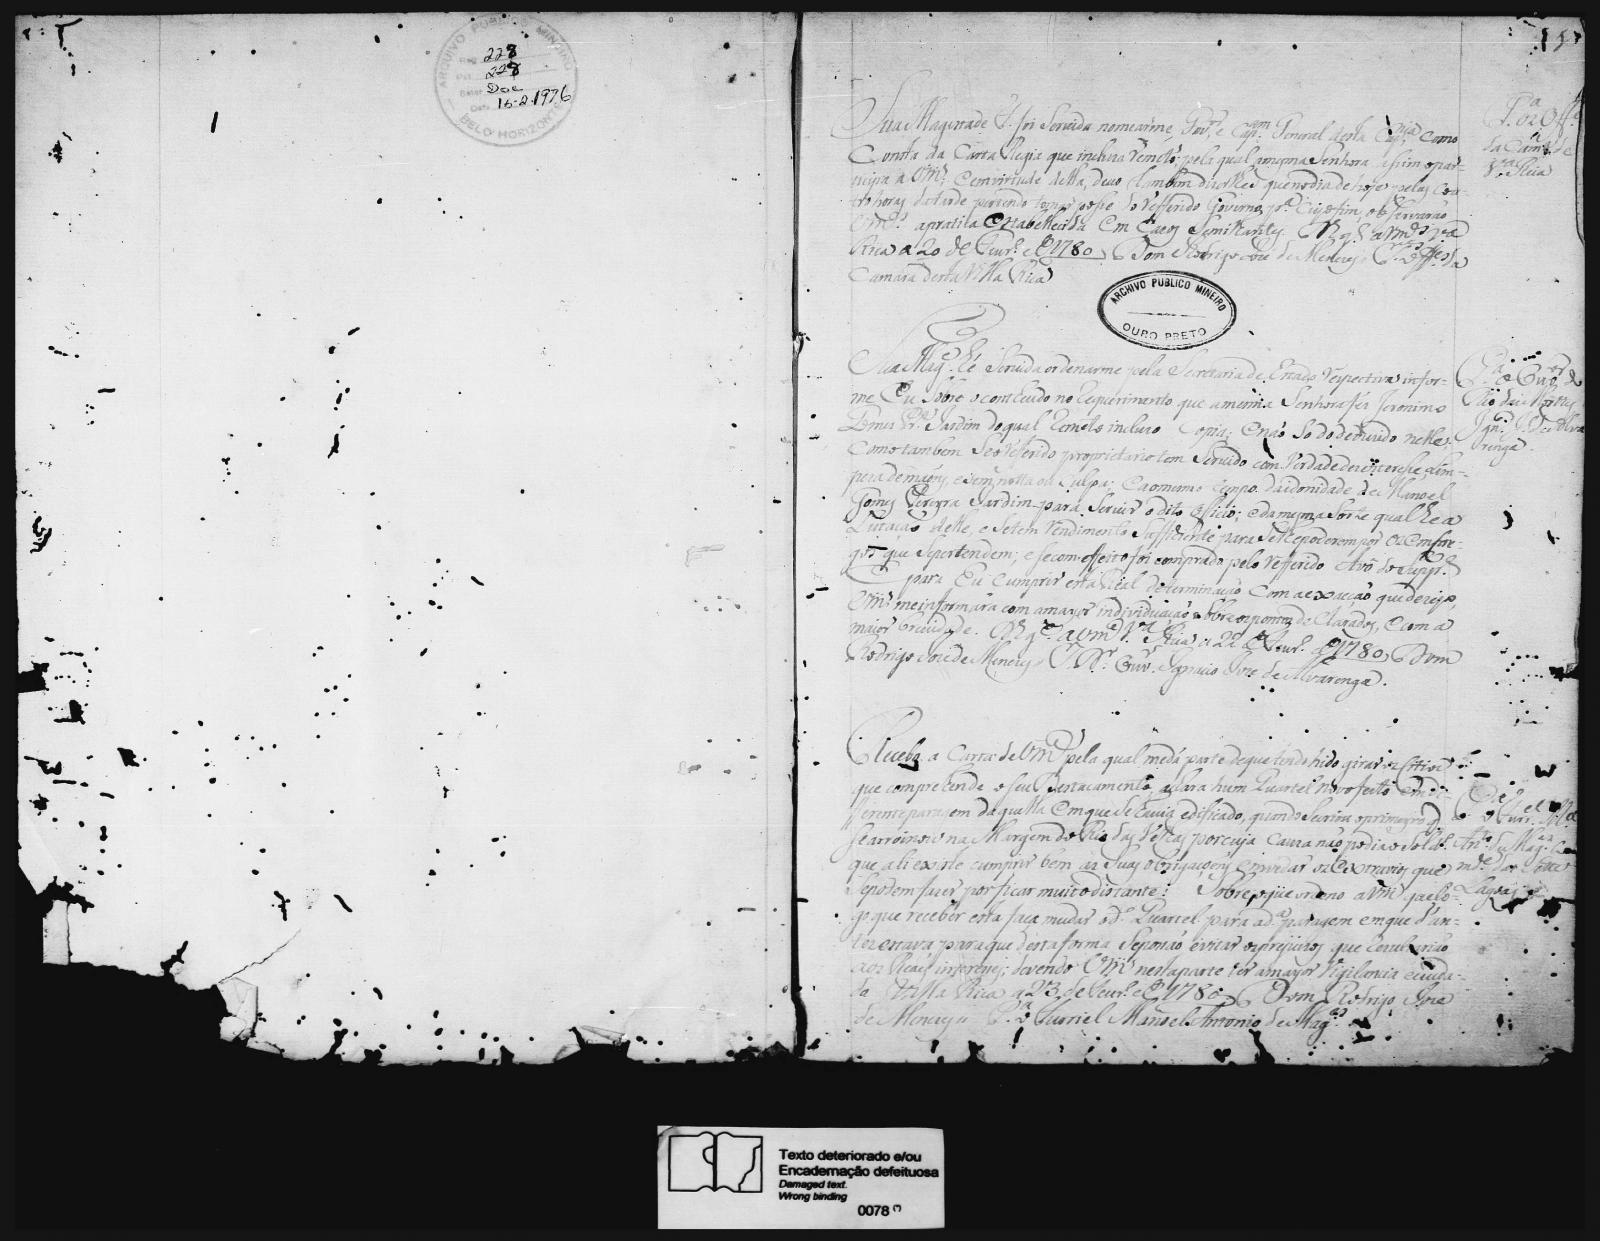 ARQUIVO PUBLICO MINEIRO
228
228
Doc
Data 16-2-1976
BELO HORIZONTE
Sua Magestade F. foi Servida nomearme, Gov.or e Cap.am General desta Cap.nia Como
Consta da Carta Regia que incluza remeto; pela qual a mesma Senhora assim o par-
ticipa a Vm.ces; e em virtude della, devo tambem dizerlhes que no dia de hoje pelas
horas da tarde pertendo tomar posse do refferido Governo, p.a cujo fim, observarão
Vm.ces a pratica Estabellecida Em Cazos Semilhantes. D.s g.e a Vm.ces V.a
Rica a 20 de Fevr.o de 1780 Dom Rodrigo Joze de Menezes
Camara desta Villa Rica
P.a os Off.es
da Camr.a de
V.a Rica
ARCHIVO PUBLICO MINEIRO
OURO PRETO
Sua Mag.e hé Servida ordenarme pela Secretaria de Estado respectiva infor-
me Eu Sobre o contheudo no Requerimento que a mesma Senhora fés Jeronimo
Jardim do qual remeto incluzo Copia; E não Só do deduzido nelle;
Como tambem Se o referido proprietario tem Servido com verdade dezinteresse, e lim-
peza de maons, e sem notta ou Culpa; E ao mesmo tempo da idonidade de Manoel
Gomes Pereyra Jardim para Servir o dito officio; e da mesma Sorte qual he a
Lutação delle, e Se tem rendimento Sufficiente para Selhe poderem por os encarre-
gos que Se pertendem; e se com effeito foi comprado pelo refferido Avô do Supp.e
para Eu cumprir esta Real determinação Com a exação que dezejo,
Vm.ce me informará com a mayor individuação Sobre os pontos declarados, e com a
maior brevidade. D.s g.e a Vm.ce V.a Rica a 22 de Fevr.o de 1780 Dom
Rodrigo Joze de Menezes S.r Ouv.or Ignacio Joze de Alvarenga.
P.a o Ouv.or do
Rio das Mortes
Ign.o J.e de Alva
renga.
Recebo a Carta de Vm.ce pela qual me dá parte de que tendo hido girar os Citios
que comprehende o seu Destacamento, achara hum Quartel novo feito em di-
fferente paragem daquella Em que Estava edificado, quando Servia o primeyro q
Se arroinou na Margem do Rio das Velhas por cuja Cauza não podia o Sold.o
que ali existe cumprir bem as Suas obrigaçoens e evitar os extravios que
Se podem fazer por ficar muito distante: Sobre o que ordeno a Vm.ce q̃ a elo-
go que receber esta faça mudar o d.o Quartel para a d.a paragem em que d'an-
tes estava para que desta forma Se possão evitar os prejuizos que rezultarião
aos Reais interesses; devendo Vm.ce nessa parte ter a mayor vigilancia e cuida-
do Villa Rica a 23 de Fevr.o de 1780 Dom Rodrigo Joze
de Menezes Furriel Manoel Antonio de Mag.es
P.a o Furr.el M.el
Ant.o de Mag.es Com
m.de das Sette
Lagoas
Texto deteriorado e/ou
Encadernação defeituosa
Damaged text.
Wrong binding
0078 (*)